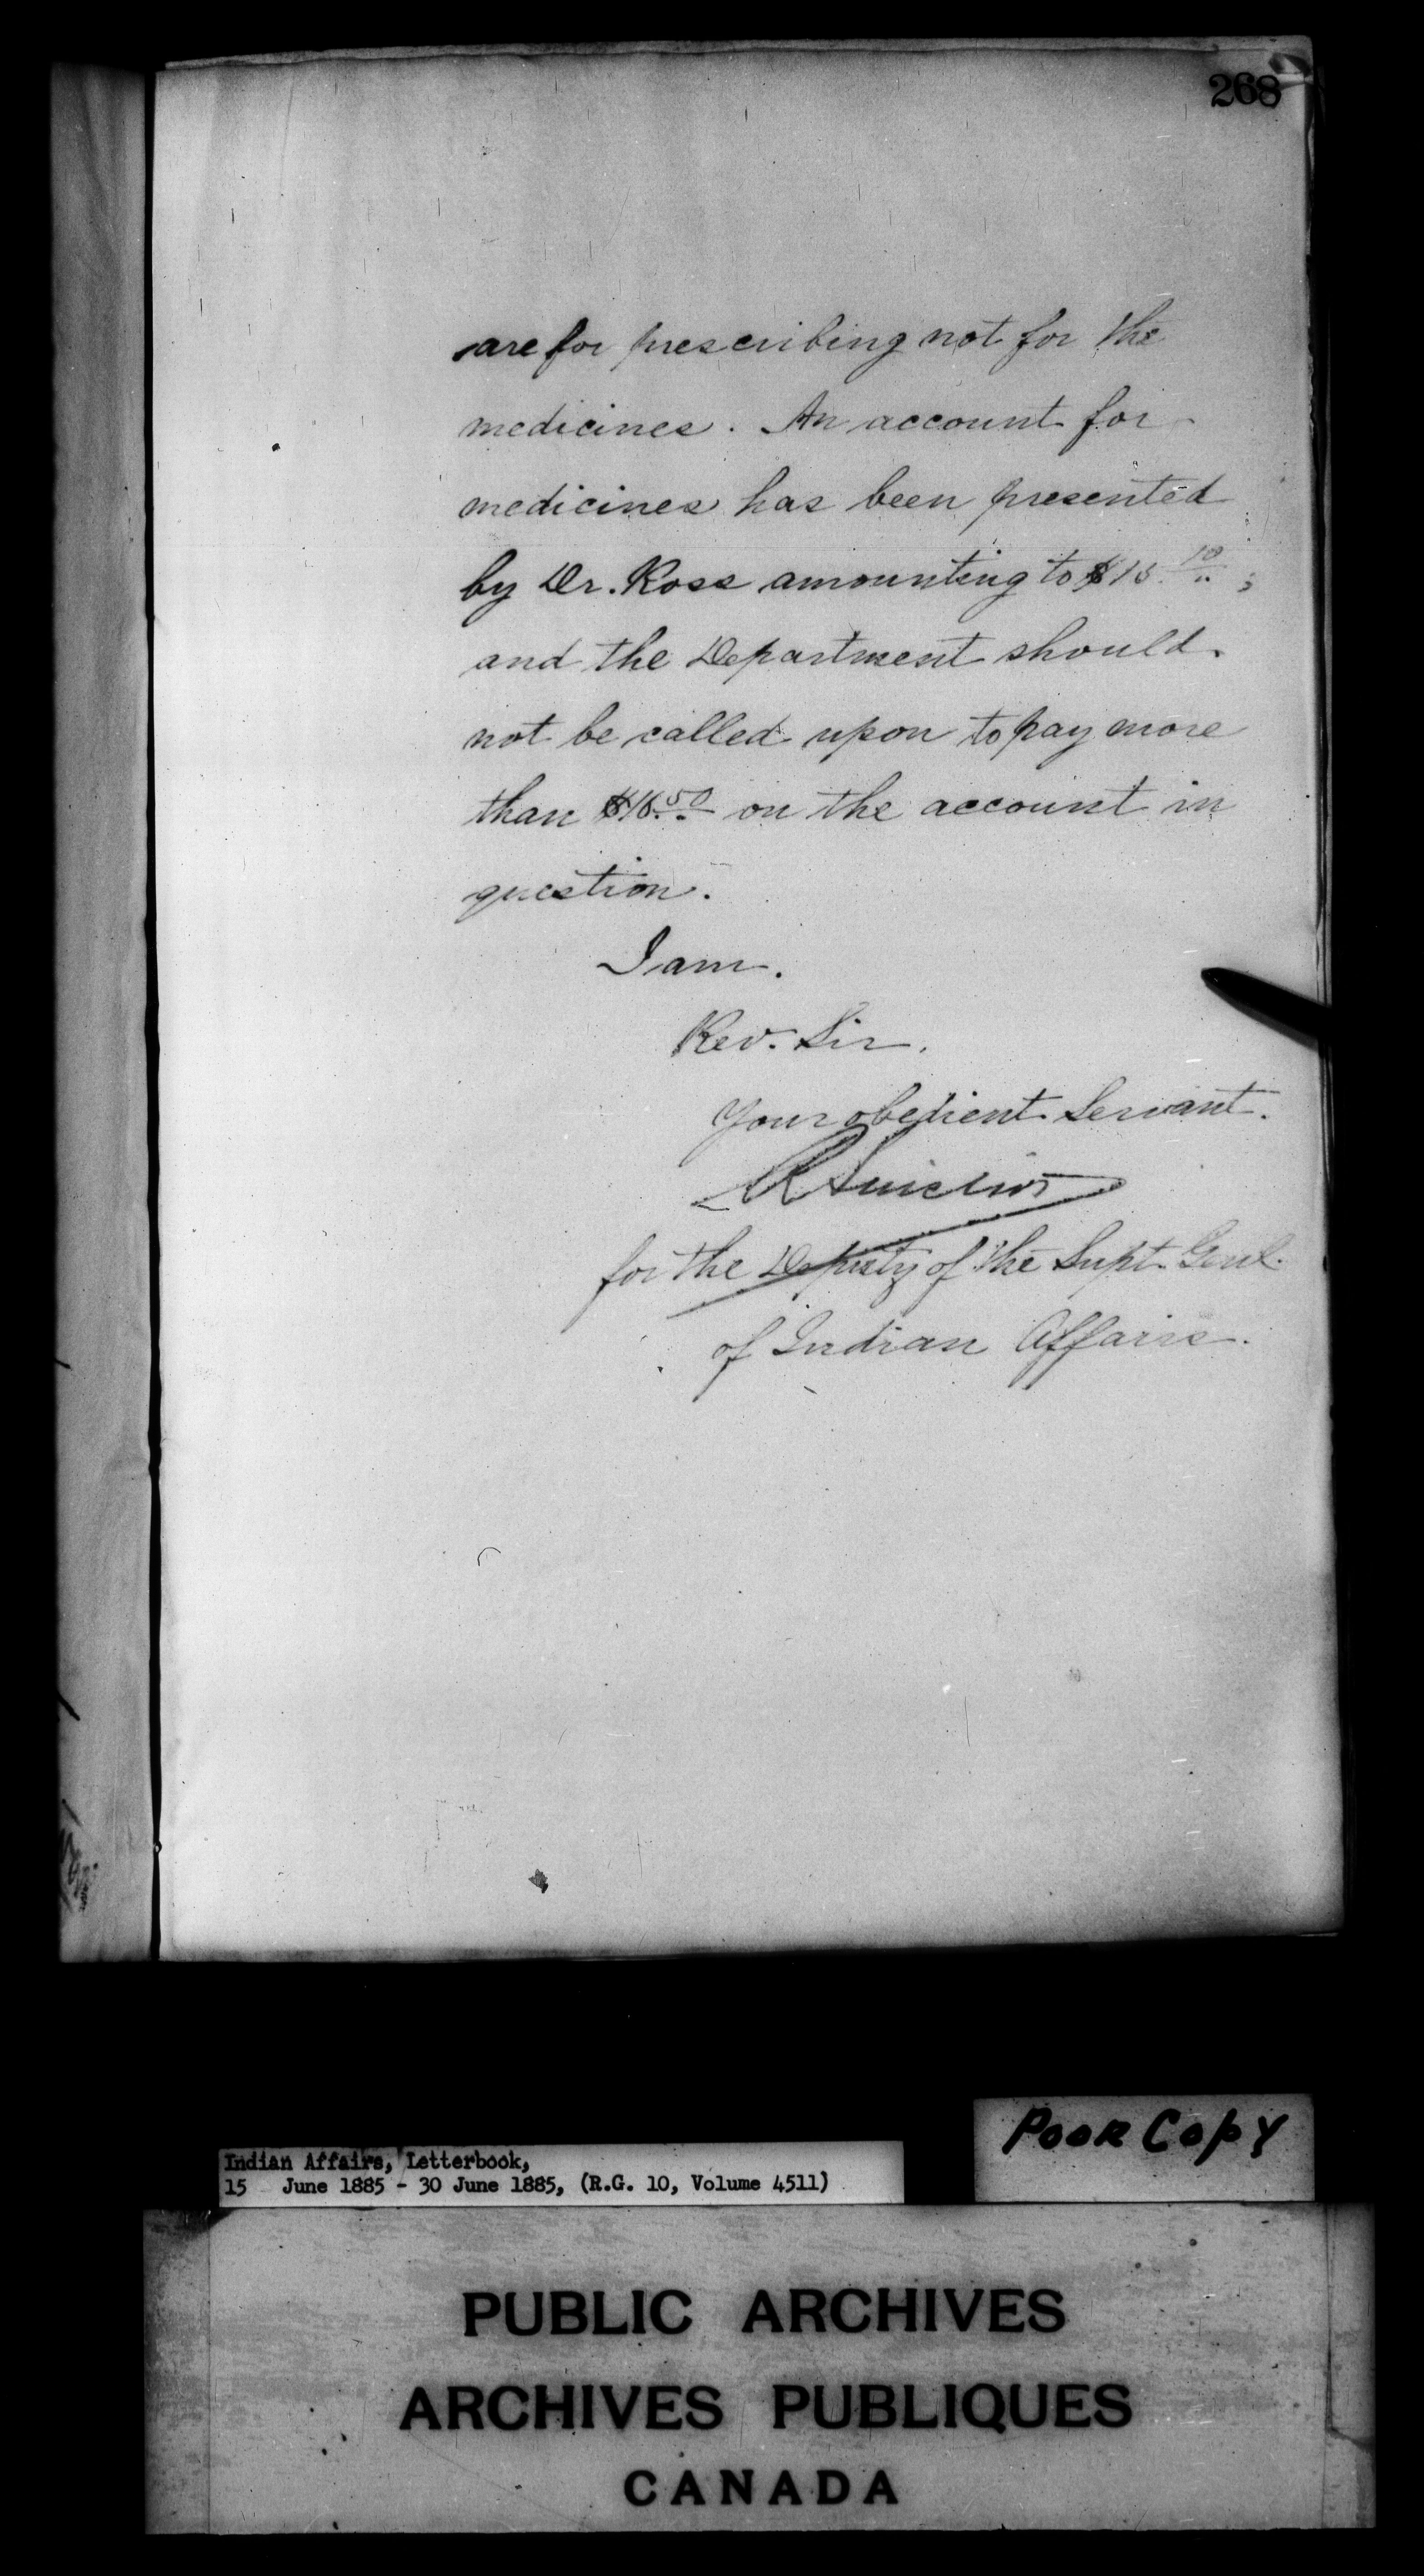 268
are for prescribing not for the
medicines. An account for
medicines has been presented
by Dr. Ross amounting to $15.10;
and the Department should
not be called upon to pay more
than $16.50 on the account in
question.
I am.
Rev. Sir.
Your obedient Servant.
R Sinclair
for the Deputy of the Supt. Genl.
of Indian Affairs.
Poor Copy
Indian Affairs, Letterbook,
15 June 1885 - 30 June 1885, (R.G. 10, Volume 4511)
PUBLIC ARCHIVES
ARCHIVES PUBLIQUES
CANADA